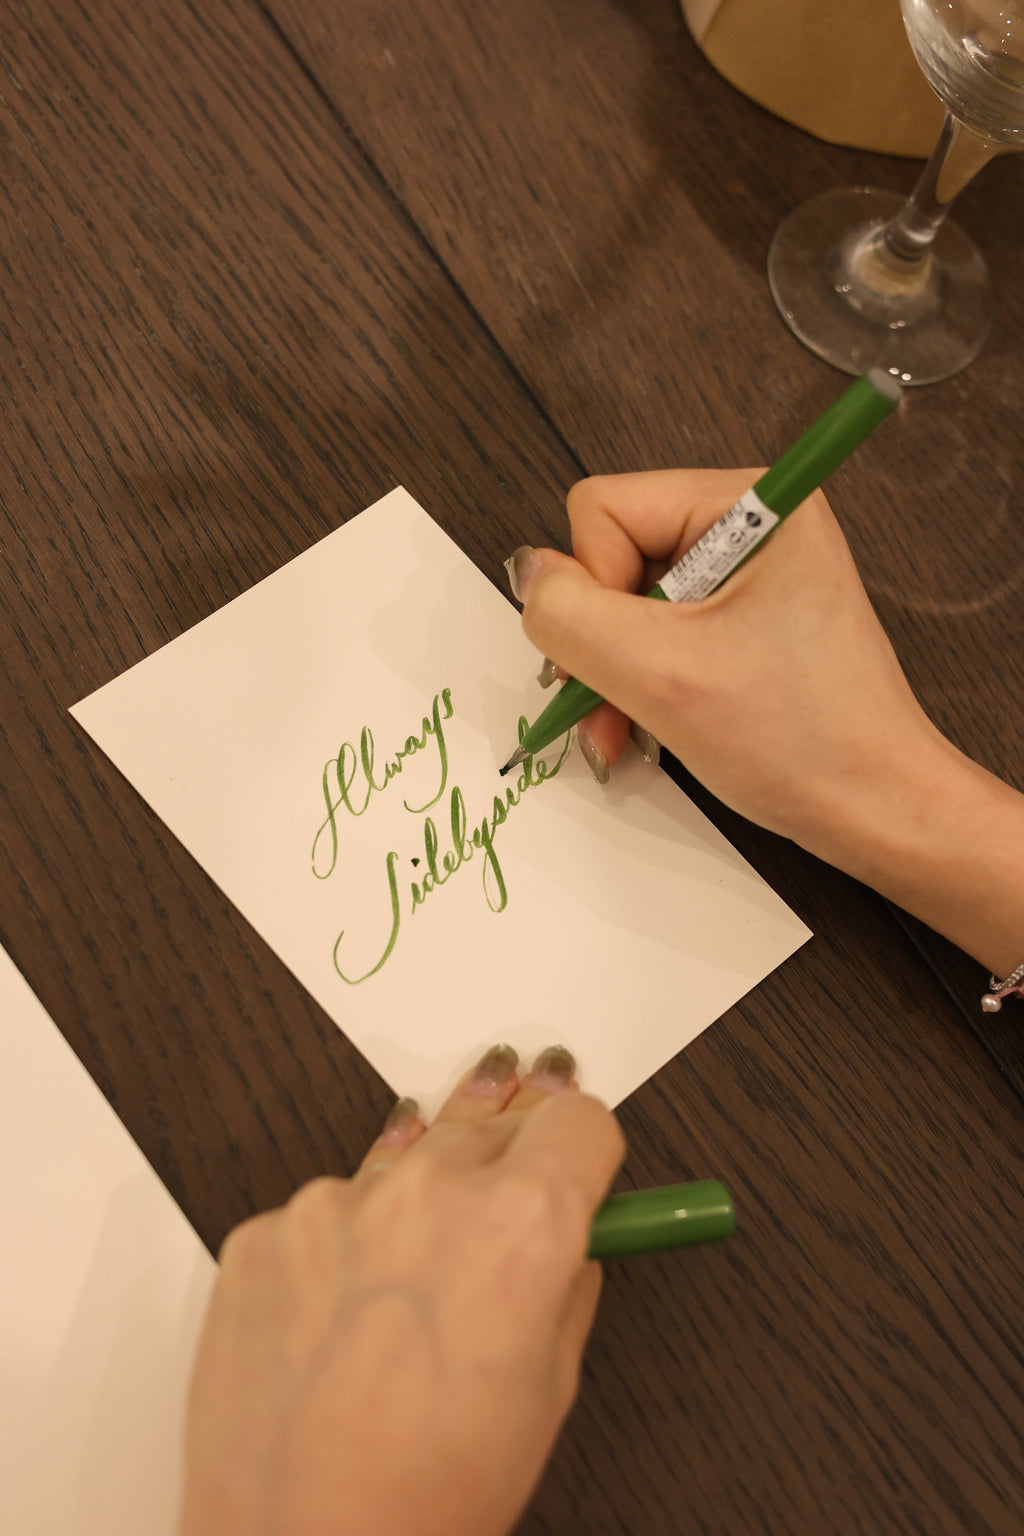 Always
Sidebyside